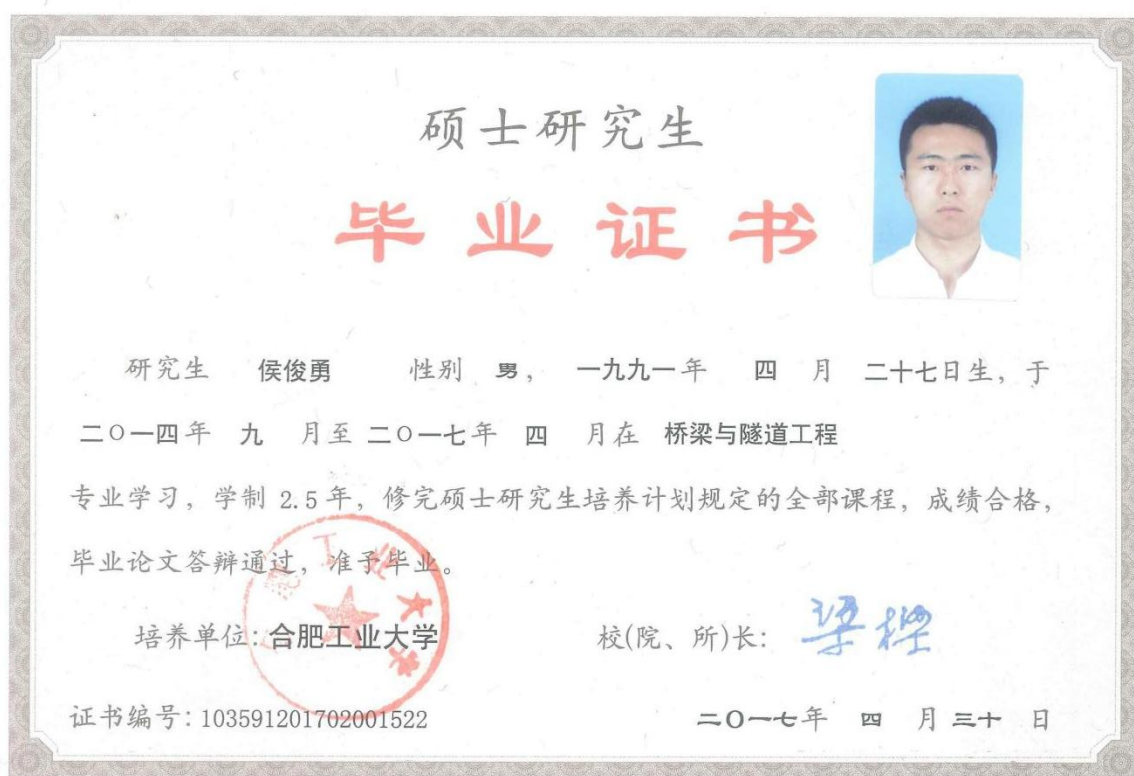 硕士研究生
毕业证书
研究生 侯俊勇 性别 男， 一九九一年 四 月 二十七日生，于
二〇一四年 九 月至二〇一七年 四 月在 桥梁与隧道工程
专业学习，学制 2.5 年，修完硕士研究生培养计划规定的全部课程，成绩合格，
毕业论文答辩通过，准予毕业。
培养单位：合肥工业大学 校(院、所)长：梁樑
证书编号：103591201702001522 二〇一七年 四 月三十 日